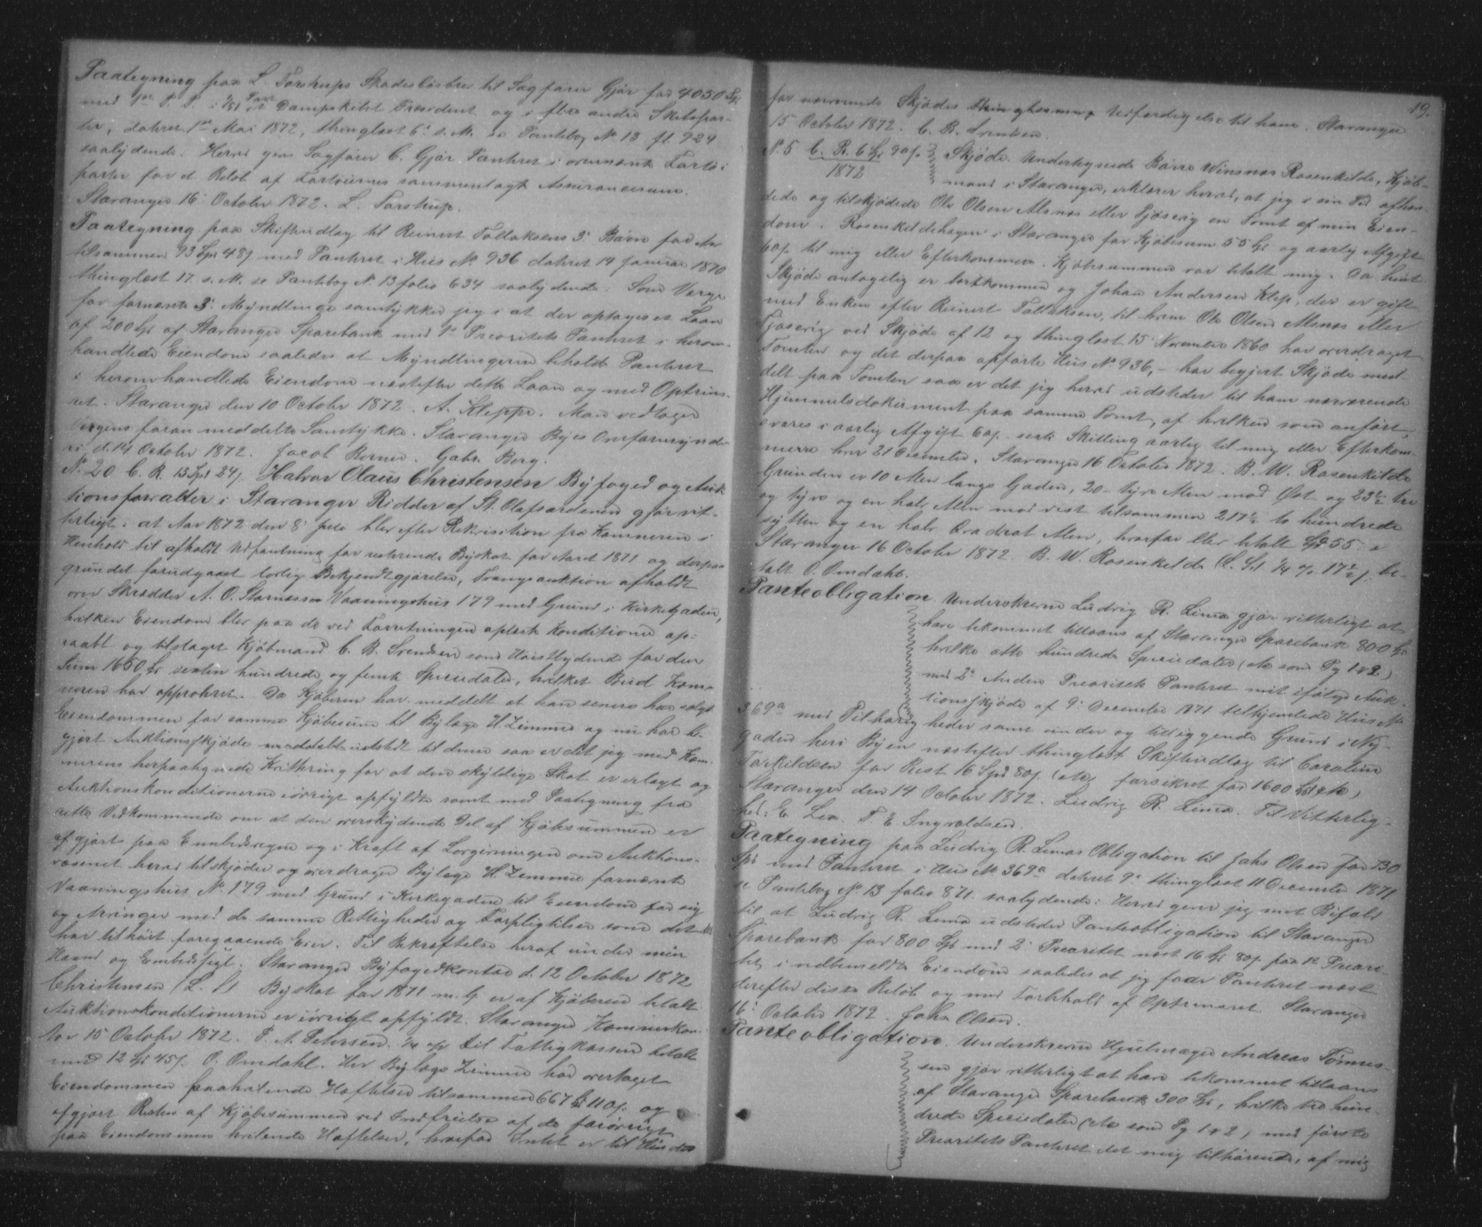 Paategning paa L. Torstrups Skadesløsbrev til Sagfører Gjør for 4050 Spd
med 1ste P. P. i Dampskibet Præsident og i flere andre Skibspar-
ter, dateret 1ste Mai 1872, thinglæst 6. s. M. se Pantebog No 13 fl. 924
saalydende: Herved gives Sagfører C. Gjør Panteret i ovennævnte Fartøi
parter for et Beløb af Fartøiernes sammenlagte Assurancesum.
Stavanger 16 October 1872. L. Torstrup.
Paategning paa Skifteudlæg til Reinert Tollaksens 3 Børn for Arv
tilsammen 93 Spd 48 s med Panteret i Huus No 936 dateret 14 Januar 1870
thinglæst 17 s. M. se Pantebog No 13 folio 634 saalydende: Som Værge
for fornævnte 3 Myndlinge samtykker jeg i at der optages et Laan
af 200 Spd af Stavanger Sparebank med 1ste Prioritets Panteret i herom-
handlede Eiendom saaledes at Myndlingerne beholde Panteret
i heromhandlede Eiendom næstefter dette Laan og med Optrins-
ret. Stavanger den 10 October 1872. A. Kleppe. Man vedtager
Værgens foran meddelte Samtykke. Stavanger Byes Overformynde-
ri d. 14 October 1872. Jacob Berner. Gabr. Berg.
No 20 C. R. 13 Spd 24 s. Halvor Olaus Christensen Byfoged og Auk-
tionsforvalter i Stavanger Ridder af St. Olafsordenen gjør vit-
terligt: at Aar 1872 den 8 blev efter Rekvisition fra Kæmneren i
Henhold til afholdt Udpantning for resterende Byskat for Aaret 1871 og derpaa
grundet forudgaaet lovlig Bekjendtgjørelse, Tvangsauktion afholdt
over Skrædder A. O. Vaaningshuus 179 med Grund i Kirkegaden,
hvilken Eiendom blev paa de ved Forretningen oplæste Konditioner op-
raabt og tilslaget Kjøbmand C. B. Svendsen som Høistbydende for den
Sum 1650 Spd sexten hundrede og femti Speciedaler, hvilket Bud Kæm-
neren har approberet. Da Kjøberen har meddelt at han senere har solgt
Eiendommen for samme Kjøbesum til Bylæge H Zimmer og nu har be-
gjært Auktionsskjøde meddelt udstedt til denne saa er det jeg med Kæm-
nerens herpaategnede Kvittering for at den skyldige Skat er erlagt og
Auktionskonditionerne iøvrigt opfyldte samt med Paategning fra
rette Vedkommende om at den overskydende Del af Kjøbesummen er
afgjort paa Embedsvegne og i Kraft af Lovgivningen om Auktions-
væsenet herved tilskjøder og overdrager Bylæge H Zimmer fornævnte
Vaaningshuus No 179 med Grund i Kirkegaden til Eiendom for sig
og Arvinger med de samme Rettigheder og Forpligtelser som det
har tilhørt foregaaende Eier. Til Bekræftelse heraf under min
Haand og Embedssegl. Stavanger Byfogedkontor d. 12 October 1872
Christensen (L. S.) Byskat for 1871 m. v. er af Kjøberen betalt
Auktionskonditionerne er iøvrigt opfyldt. Stavanger Kæmnerkon-
tor 15 October 1872. P. A. Petersen. Til Fattigkassen betalt
med 12 Spd 45 s. O. Omdahl. Hr Bylæge Zimmer har overtaget
Eiendommen paahvilende Heftelser tilsammen 667 Spd 110 s. og
afgjort Resten af Kjøbesummen ved Indfrielse af de forøvrigt
paa Eiendommen hvilende Heftelser, hvorfor Intet er til Hinder
19.
for nærværende Skjødes Udfærdigelse til ham. Stavanger
15 October 1872. C. B. Svendsen.
No 5 C. R. 6 Spd 90 s. Skjøde. Undertegnede Børre Winsnes Rosenkilde, Kjøb-
1872 mand i Stavanger, erklærer herved, at jeg i sin Tid afhæn-
dede og tilskjødede Ole Olsen Alsnæs eller Gjøsevig en Tomt af min Eien-
dom, Rosenkildehagen i Stavanger for Kjøbesum 55 Spd og aarlig Afgift
60 s. til mig eller Efterkommere. Kjøbesummen var betalt mig. Da hint
Skjøde antagelig er bortkommen og Johan Andersen Klep, der er gift
med Enken efter Reinert Tollaksen, til hvem Ole Olsen Alsnæs eller
Gjøsevig ved Skjøde af 12 og thinglæst 15 November 1860 har overdraget
Tomten og det derpaa opførte Huus No 936, – har begjært Skjøde med-
delt paa Tomten saa er det jeg herved udsteder til ham nærværende
Hjemmelsdokument paa samme Tomt, af hvilken som anført,
svares i aarlig Afgift 60 s. sexti Skilling aarlig til mig eller Efterkom-
mere hver 21 December. Stavanger 16 October 1872. B. W. Rosenkilde
Grunden er 10 Alen langs Gaden, 20 – tyve Alen mod Øst og 23½ tre
og tyve og en halv Alen mod vest tilsammen 217½ to hundrede
sytten og en halv Qvadrat Alen, hvorfor blev betalt Spd 55
Stavanger 16 October 1872. B. W. Rosenkilde (L. S.) be-
talt O. Omdahl.
Panteobligation Underskrevne Ludvig R. Lima gjør vitterligt at
have bekommet tillaans af Stavanger Sparebank 800 Spd
hvilke otte hundrede Speciedaler (etc som Pg 1 & 2)
med 2den Anden Prioritets Panteret mit ifølge Auk-
tionsskjøde af 9 December 1871 tilhjemlede Huus No
369a med Tilbehørigheder samt under og tilliggende Grund i Ny-
gaden heri Byen næstefter thinglæst Skifteudlæg til Caroline
Torkildsen for Rest 16 Spd 80 s. (etc) forsikret for 1600 Spd etc)
Stavanger den 14 October 1872. Ludvig R. Lima. Til Vitterlig-
hed: E. Lea. T E Ingvaldsen.
Paategning paa Ludvig R. Limas Obligation til Jahs Olsen for 130
Spd med Panteret i Huus No 369a dateret 9de thinglæst 11 December 1871
se Pantebog No 13 folio 871. saalydende: Herved giver jeg mit Bifald
til at Ludvig R. Lima udsteder Panteobligation til Stavanger
Sparebank for 800 Spd med 2 Prioritet næst 16 Spd 80 s. paa 1ste Priori-
tet, i ndbemeldte Eiendom saaledes at jeg faaer Panteret næst
derefter disse Beløb og med Forbehold af Optrinsret. Stavanger
16 October 1872. Jahs Olsen.
Panteobligation. Underskrevne Hjulmager Andreas Tønnes-
sen gjør vitterligt at have bekommet tillaans
af Stavanger Sparebank 300 Spd, hvilke tre hun-
drede Speciedaler (etc som Pg 1 & 2) med første
Prioritets Panteret det mig tilhørende, af mig